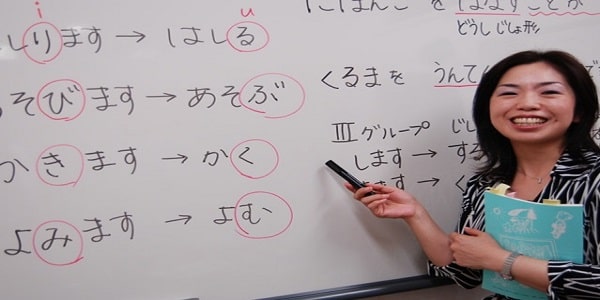 i u
しります → はしる
そびます → あそぶ
かきます → かく
よみます → よむ
にほんご を はなすことが
どうし じしょ形
くるまを うんて
III グループ じし
します → する
ます → く